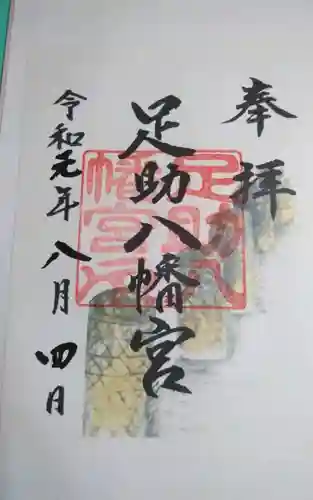 奉拝
足助八幡宮
令和元年八月四日
足助八
幡宮印